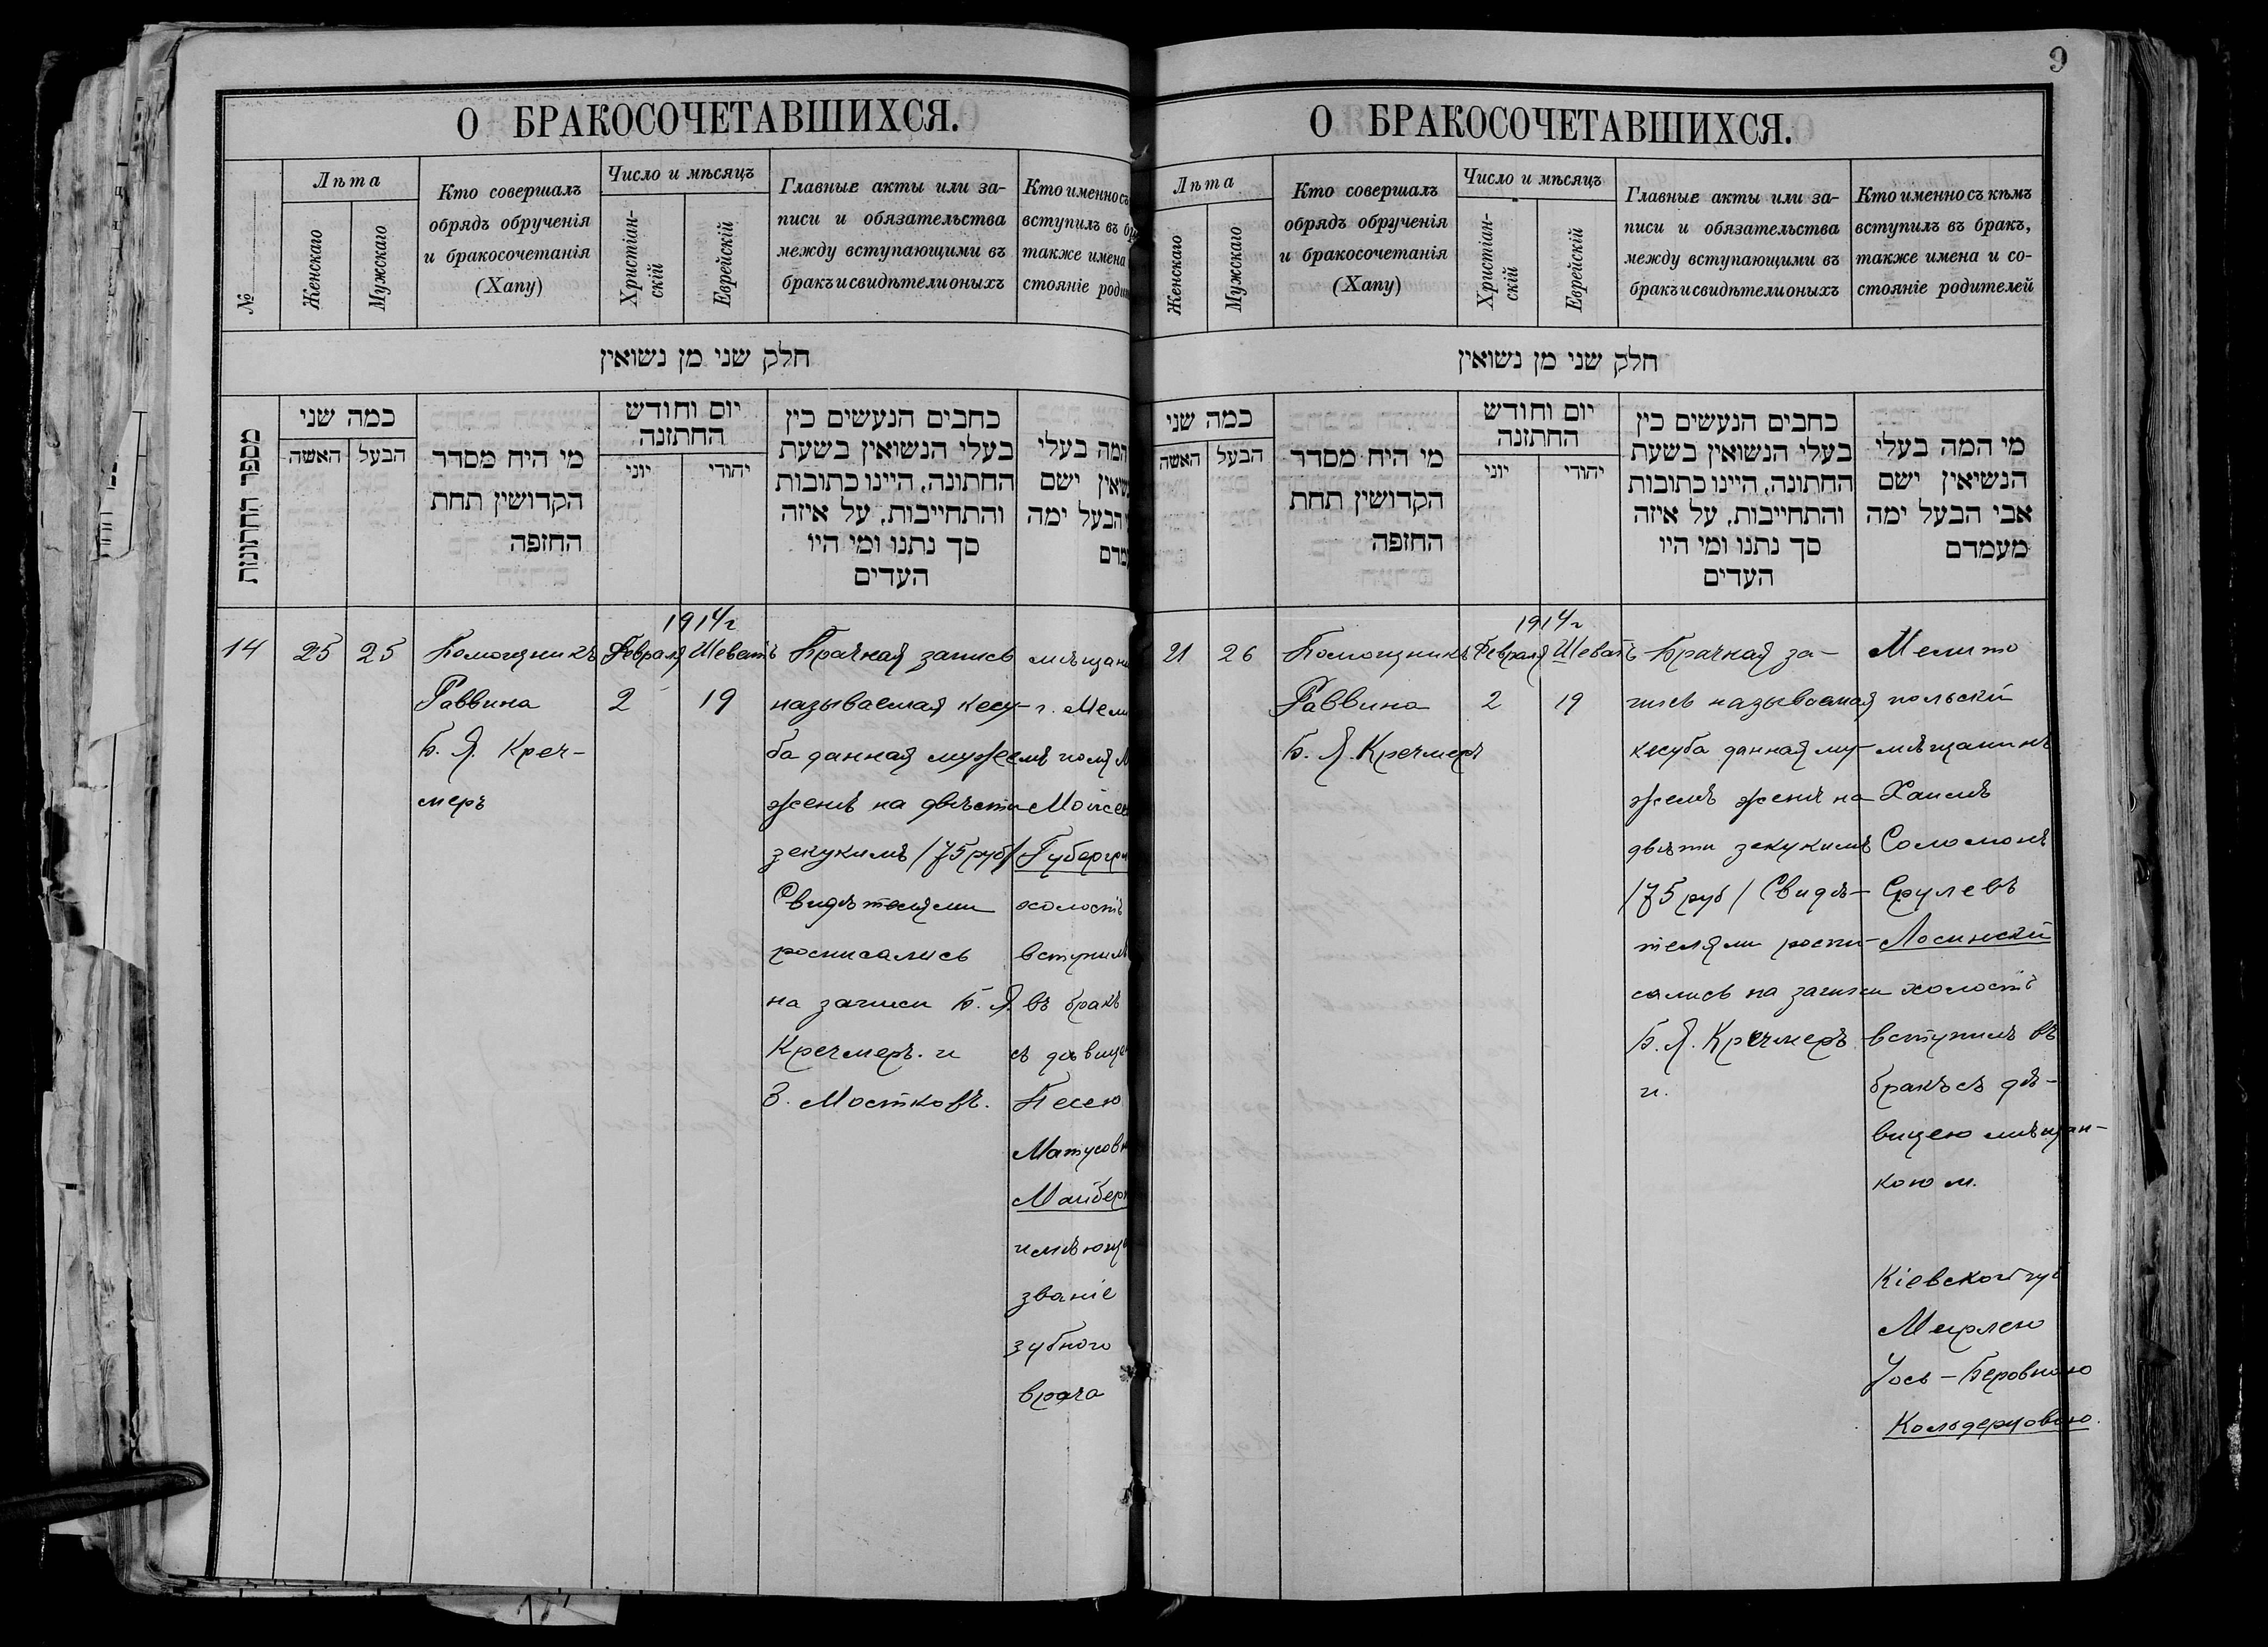 О БРАКОСОЧЕТАВШИХСЯ.
№
Лѣта
Женскаго
Мужскаго
Кто совершалъ
обрядъ обрученія
и бракосочетанія
(Хапу)
Число и мѣсяцъ
Христіан-
скій
Еврейскій
Главные акты или за-
писи и обязательства
между вступающими въ
бракъ и свидѣтели оныхъ
Кто именно съ
вступилъ въ
также имена
стояніе
חלק שני מן נשואין
מספר החתונות
כמה שני
האשה
הבעל
מי היח מסדר
הקדושין תחת
החזפה
יום וחודש
החתזנה
יוני
יהודי
כחבים הנעשים כין
בעלי הנשואין בשעת
החתונה, היינו כתובות
והתחייבות, על איזה
סך נתנו ומי היו
העדים
המה בעלי
ישם
הבעל ימה
1914 г
14
25
25
Помощникъ
Раввина
Б. Я. Креч-
меръ
Февраля
2
Шеватъ
19
Брачная запись
называемая кесу-
ба данная мужемъ
женѣ на двѣсти
зекукимъ /75 руб/
Свидѣтелями
росписались
на записи Б. Я.
Кречмеръ. и
З. Мостковъ.
г.
холостъ
вступилъ
въ бракъ
съ
Песею
званіе
зубного
врача
9
О БРАКОСОЧЕТАВШИХСЯ.
Лѣта
Женскаго
Мужскаго
Кто совершалъ
обрядъ обрученія
и бракосочетанія
(Хапу)
Число и мѣсяцъ
Христіан-
скій
Еврейскій
Главные акты или за-
писи и обязательства
между вступающими въ
бракъ и свидѣтели оныхъ
Кто именно съ кѣмъ
вступилъ въ бракъ,
также имена и со-
стояніе родителей
חלק שני מן נשואין
כמה שני
האשה
הבעל
מי היח מסדר
הקדושין תחת
החזפה
יום וחודש
החתזנה
יוני
יהודי
כחבים הנעשים כין
בעלי הנשואין בשעת
החתונה, היינו כתובות
והתחייבות, על איזה
סך נתנו ומי היו
העדים
מי המה בעלי
הנשיאין ישם
אבי הבעל ימה
מעמדם
1914 г
21
26
Помощникъ
Раввина
Б. Я. Кречмеръ
Февраля
2
Шеватъ
19
Брачная за-
пись называемая
кесуба данная му-
жемъ женѣ на
двѣти зекукимъ
/75 руб/ Свидѣ-
телями роспи-
сались на записи
Б. Я. Кречмеръ
и.
Мелито
польскій
мѣщанинъ
Хаимъ
Соломонъ
Срулевъ
Лосинскій
холостъ
вступилъ въ
бракъ съ дѣ-
вицею мѣщан-
кою м.
Кіевской губ
Мирлею
Уось-Беровною